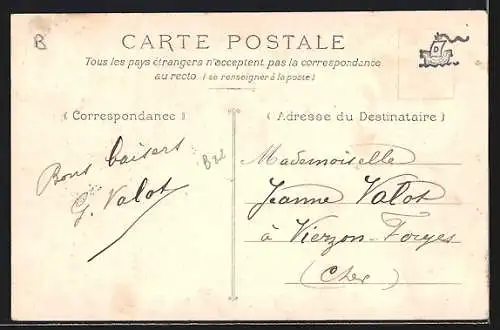 B
CARTE POSTALE
Tous les pays étrangers n'acceptent pas la correspondance
au recto (se renseigner à la poste)
(Correspondance)
Bons baisers
G. Valot
B22
D
(Adresse du Destinataire)
Mademoiselle
Jeanne Valot
à Vierzon-Forges
(Cher)